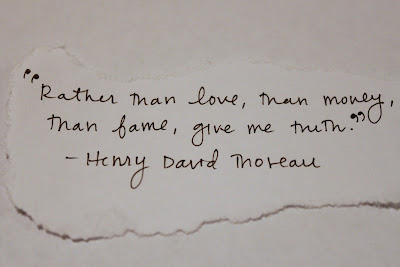 "Rather than love, than money,
than fame, give me truth."
- Henry David Thoreau